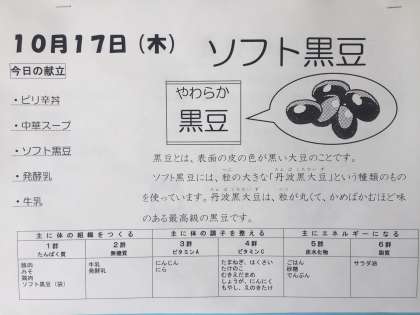 10月17日（木）
ソフト黒豆
今日の献立
・ピリ辛丼
・中華スープ
・ソフト黒豆
・発酵乳
・牛乳
やわらか
黒豆
黒豆とは、表面の皮の色が黒い大豆のことです。
ソフト黒豆には、粒の大きな「丹波黒大豆」という種類のもの
を使っています。丹波黒大豆は、粒が丸くて、かめばかむほど味
のある最高級の黒豆です。
主に体の組織をつくる 主に体の調子を整える 主にエネルギーになる
1群 2群 3群 4群 5群 6群
たんぱく質 無機質 ビタミンA ビタミンC 炭水化物 脂質
豚肉 牛乳 にんじん たまねぎ、はくさい ごはん サラダ油
みそ 発酵乳 にら たけのこ 砂糖
鶏肉 むきえだまめ でんぷん
ソフト黒豆（袋） しょうが、にんにく
もやし、えのきたけ